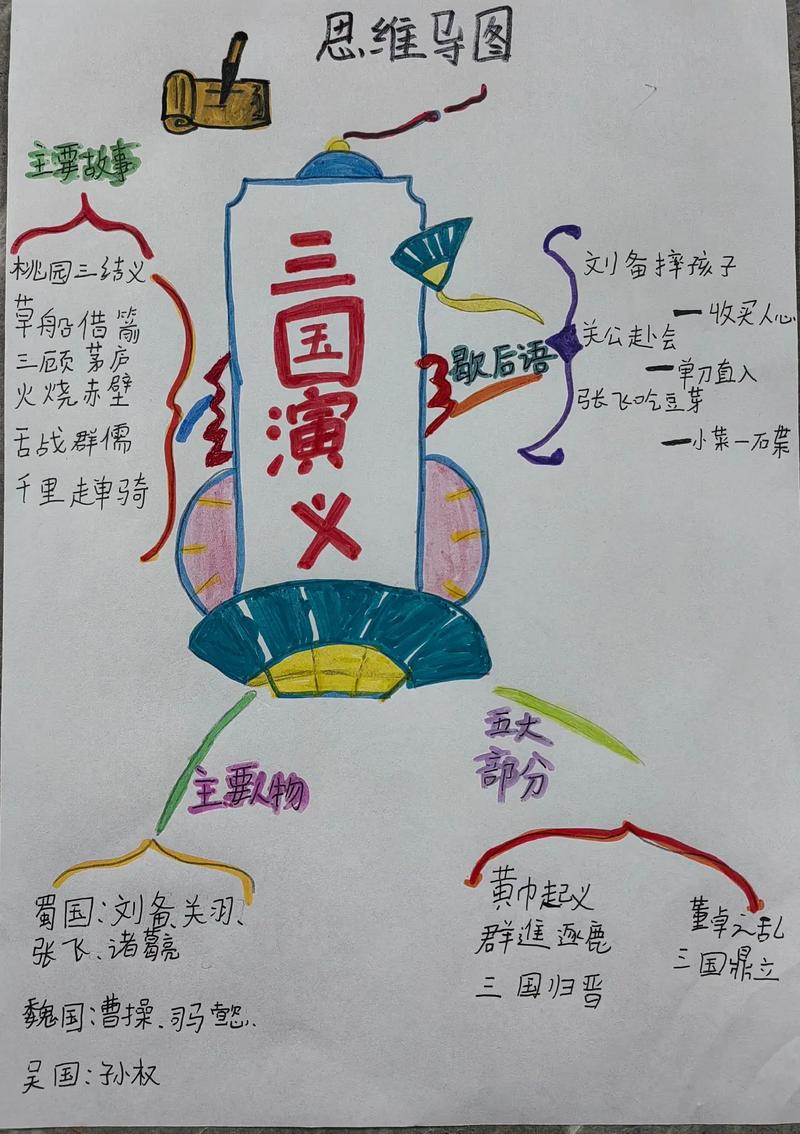 思维导图
三国演义
主要故事
桃园三结义
草船借箭
三顾茅庐
火烧赤壁
舌战群儒
千里走单骑
歇后语
刘备摔孩子
一收买人心
关公赴会
一单刀直入
张飞吃豆芽
一小菜一石碟
主要人物
蜀国:刘备、关羽、
张飞、诸葛亮
魏国:曹操、司马懿、
吴国:孙权
五大
部分
黄巾起义
董卓之乱
群進逐鹿
三国鼎立
三国归晋